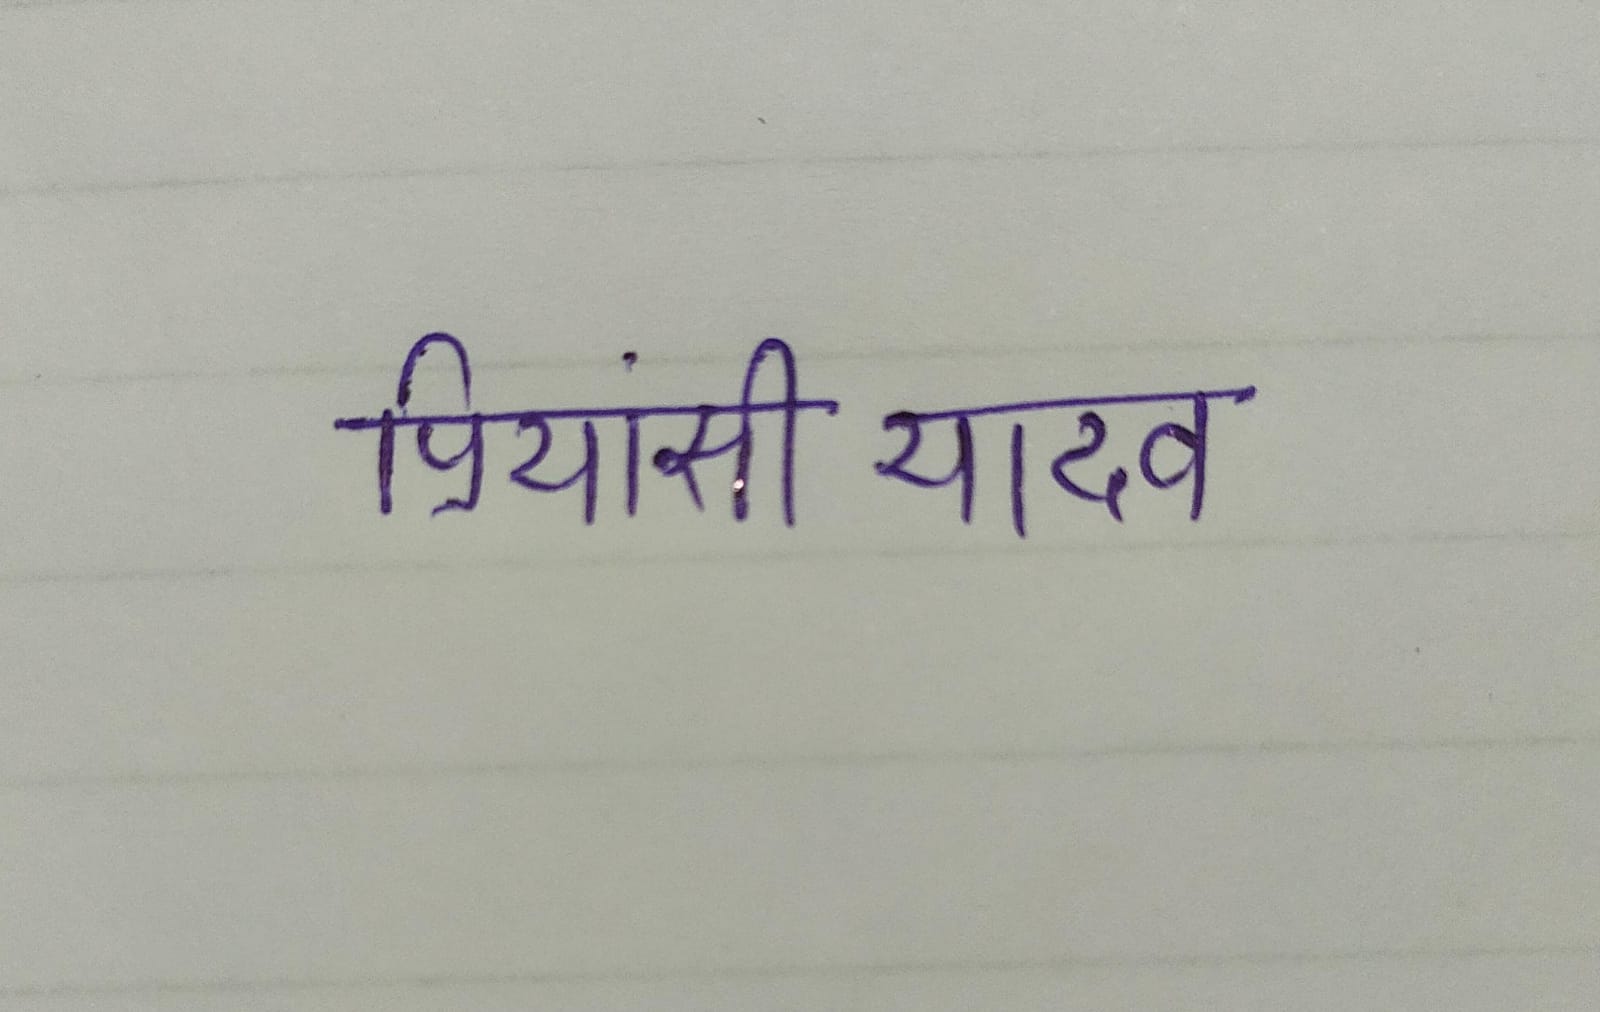 प्रियांसी यादव